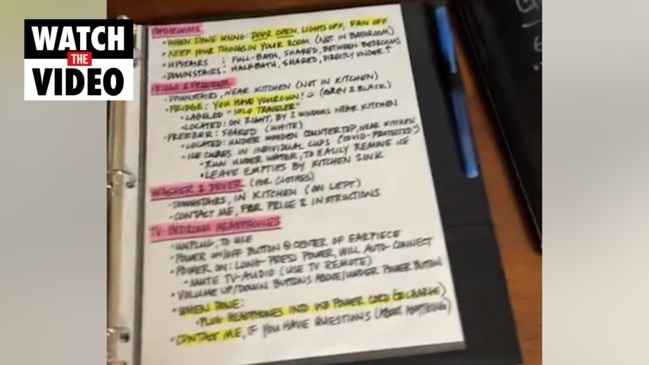 WATCH
THE
VIDEO
BATHROOMS
• WHEN DONE USING: DOOR OPEN, LIGHTS OFF, FAN OFF
• KEEP YOUR THINGS IN YOUR ROOM (NOT IN BATHROOM)
• UPSTAIRS : FULL-BATH, SHARED, BETWEEN BEDROOMS
• DOWNSTAIRS: HALF BATH, SHARED, DIRECTLY UNDER ↑
FRIDGE & FREEZER
• DOWNSTAIRS, NEAR KITCHEN (NOT IN KITCHEN)
• FRIDGE: YOU HAVE YOUR OWN! (GREY & BLACK)
• LABELED "SOLO TRAVELER"
• LOCATED: ON RIGHT, BY 2 WINDOWS NEAR KITCHEN
• FREEZER: SHARED (WHITE)
• LOCATED: UNDER WOODEN COUNTERTOP, NEAR KITCHEN
• ICE CUBES IN INDIVIDUAL CUPS (COVID-PROTECTED)
• RUN UNDER WATER, TO EASILY REMOVE ICE
• LEAVE EMPTIES BY KITCHEN SINK
WASHER & DRYER (FOR CLOTHES)
• DOWNSTAIRS, IN KITCHEN (ON LEFT)
• CONTACT ME, FOR PRICE & INSTRUCTIONS
TV-BEDROOM HEADPHONES
• UNPLUG, TO USE
• POWER ON/OFF BUTTON @ CENTER OF EARPIECE
• POWER ON: LONG-PRESS POWER, WILL AUTO-CONNECT
• MUTE TV-AUDIO (USE TV REMOTE)
• VOLUME UP/DOWN BUTTONS ABOVE/UNDER POWER BUTTON
• WHEN DONE:
• PLUG HEADPHONES INTO USB POWER CORD
• CONTACT ME, IF YOU HAVE QUESTIONS (ABOUT ANYTHING)